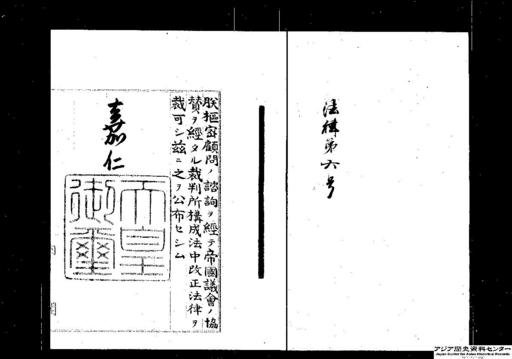 法律第六号
朕樞密顧問ノ諮詢ヲ經テ帝國議會ノ協
賛ヲ經タル裁判所構成法中改正法律ヲ
裁可シ茲ニ之ヲ公布セシム
嘉仁
天皇
御璽
アジア歴史資料センター
Japan Center for Asian Historical Records